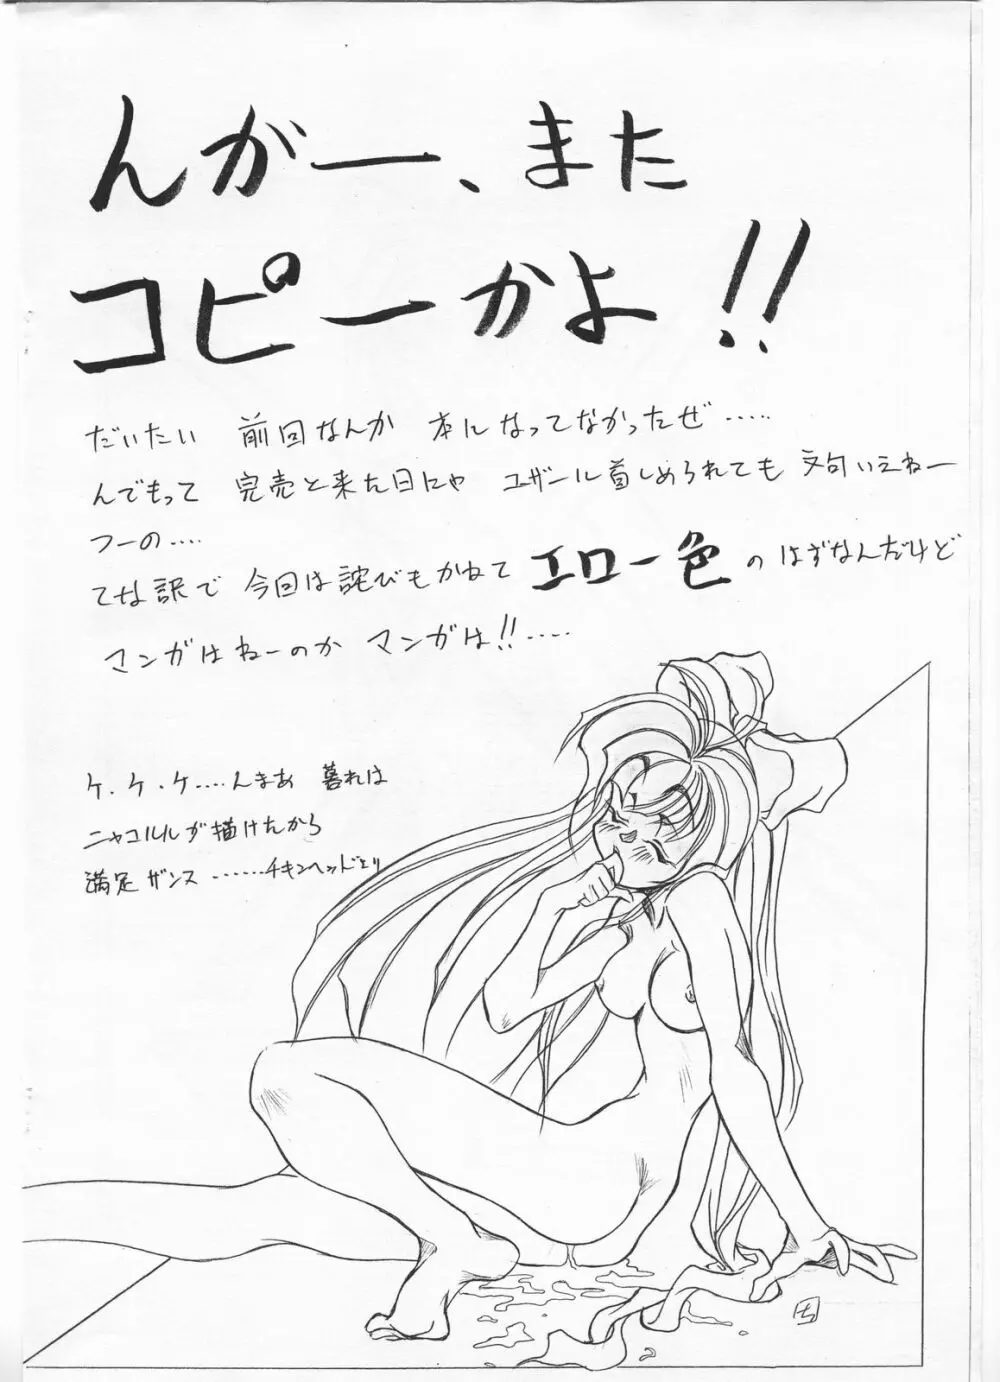 んがー、また
コピーかよ!!
だいたい 前回なんか 本になってなかったぜ……
んでもって 完売と来た日にゃ ユザール首しめられても 文句いえねー
つーの….
てな訳で 今回は詫びもかねて エロ一色 のはずなんだけど
マンガはねーのか マンガは!!…..
ケ.ケ.ケ…..んまあ 暮れは
ニャコルルが描けたから
満足ザンス …….チキンヘッドより